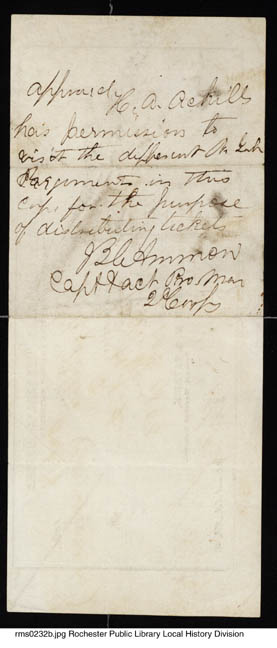 approved H. A. Achills
has permission to
visit the different N. York
Regiments in this
Corps for the purpose
of distributing tickets
Capt & act Pro. Mar
2 Corps
rms0232b.jpg Rochester Public Library Local History Division